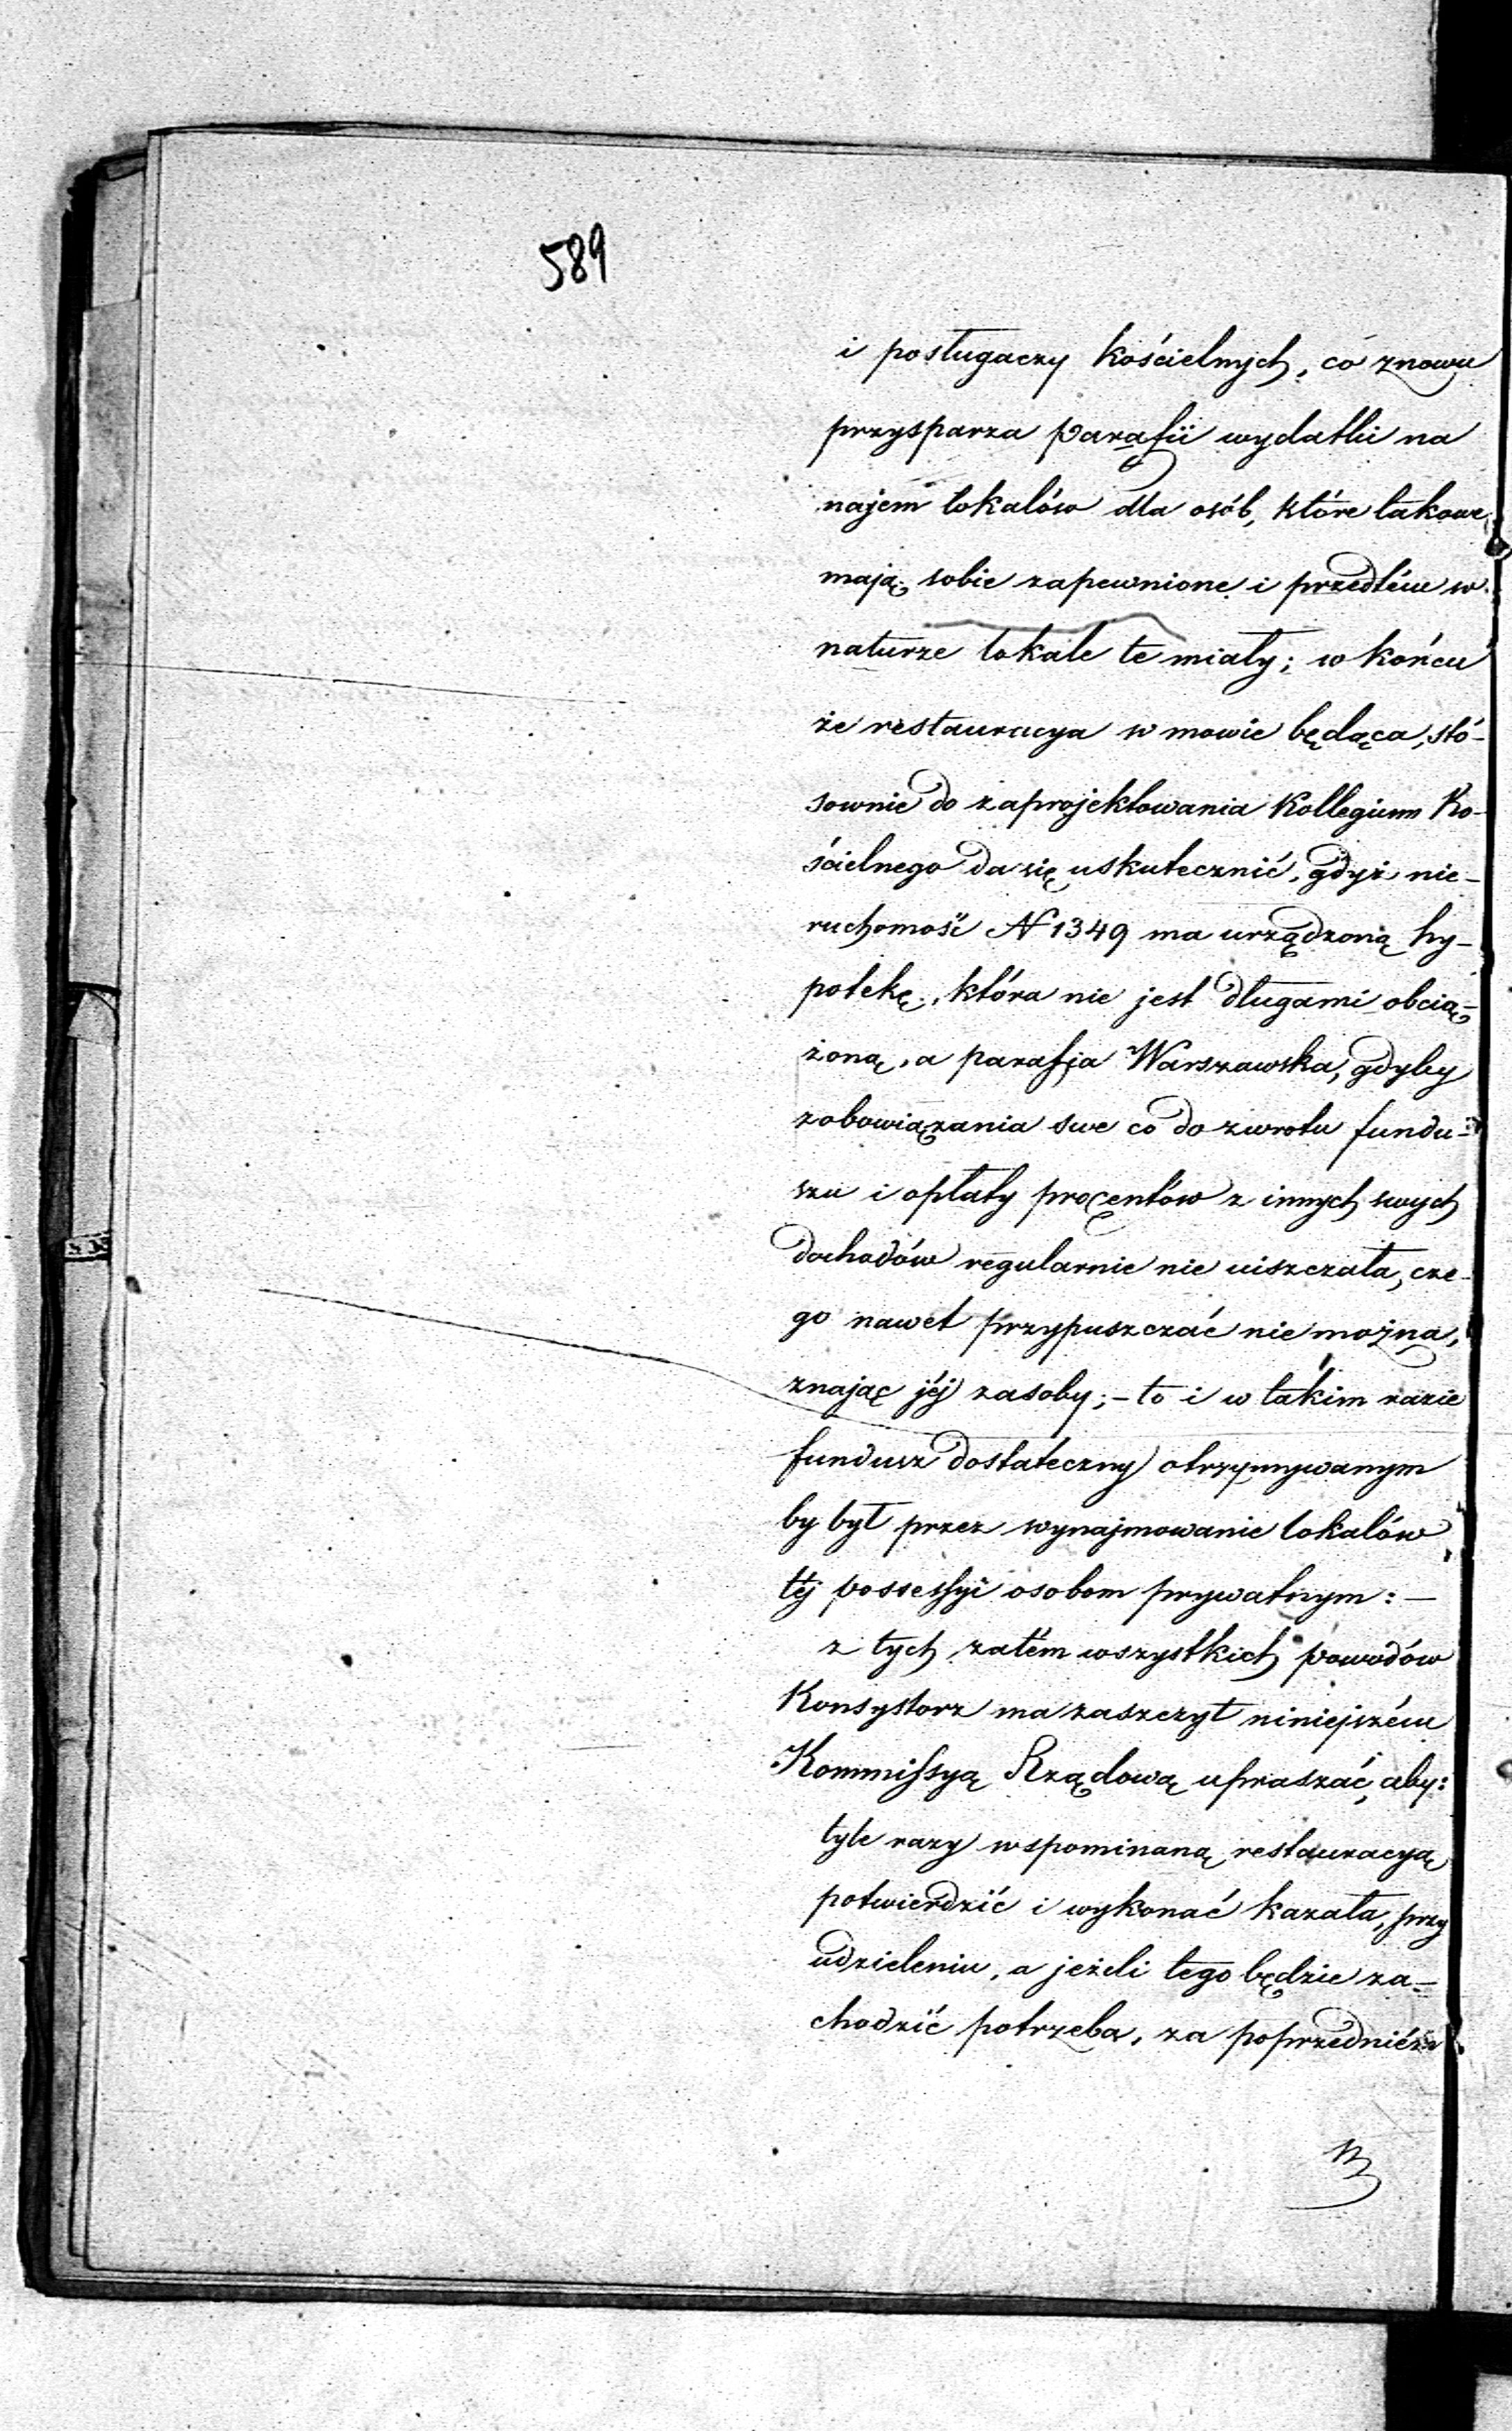 589
i posługaczy kościelnych, co znowu
przysparza parafii wydatki na
najem lokalów dla osób, które takowe
mają sobie zapewnione i przedtém w
naturze lokale te miały; w końcu
że restauracya w mowie będąca, stó-
sownie do zaprojektowania Kollegium Ko-
ścielnego da się uskutecznić, gdyż nie-
ruchomość N 1349 ma urządzoną hy-
potekę, która nie jest długami obcią-
żoną, a parafja Warszawska, gdyby
zobowiązania swe co do zwrotu fundu-
szu i opłaty procentów z innych swych
dochodów regularnie nie uiszczała, cze-
go nawet przypuszczać nie można,
znając jéj zasoby; - to i w takim razie
fundusz dostateczny otrzymywanym
by był przez wynajmowanie lokalów
téj possessyi osobom prywatnym: —
z tych zatém wszystkich powodów
Konsystorz ma zaszczyt niniejszém
Kommissyą Rządową upraszać, aby:
tyle razy wspominaną restauracyą
potwierdzić i wykonać kazała, przy
udzieleniu, a jeżeli tego będzie za-
chodzić potrzeba, za poprzedniém